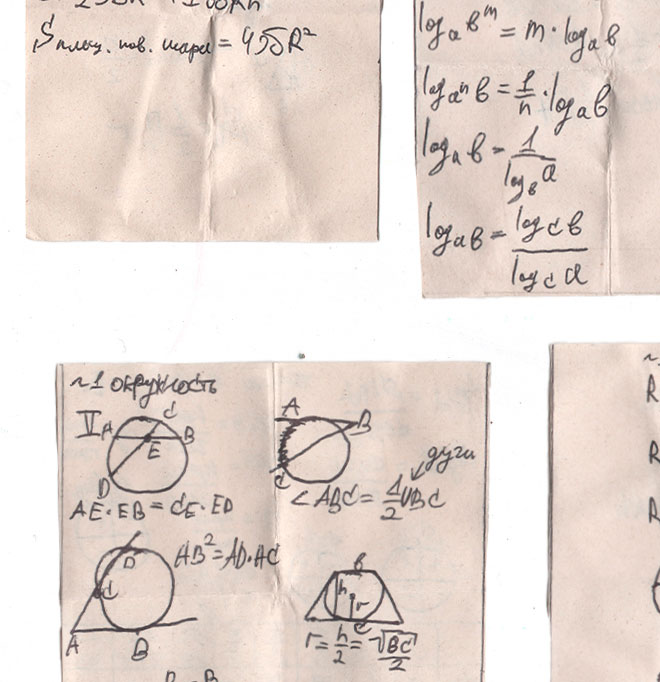 S площ. пов. шара = 4πR²
logₐ b^m = m · logₐ b
log_{aⁿ} b = 1/n · logₐ b
logₐ b = 1/log_b a
logₐ b = log_c b / log_c a
~1 окружность
V A C B E D
AE·EB = CE·ED
A B C
дуги
∠ABC = 1/2 ∪BC
AB² = AD·AC
D C A B
B h r C
r = h/2 = √BC/2
R
R
R